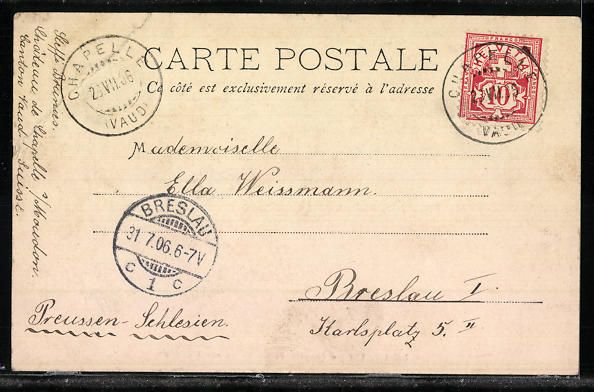 CARTE POSTALE
Ce côté est exclusivement réservé à l'adresse
Mademoiselle
Ella Weissmann.
Breslau I.
Karlsplatz 5. II
Preussen-Schlesien.
Château de Chapelle s/Moudon.
Canton Vaud Suisse.
CHAPELLE
VII. 06
(VAUD)
BRESLAU
31.7.06.6-7V
C 1 C
FRANCO
HELVETIA
10
CHAPELLE
(VAUD)